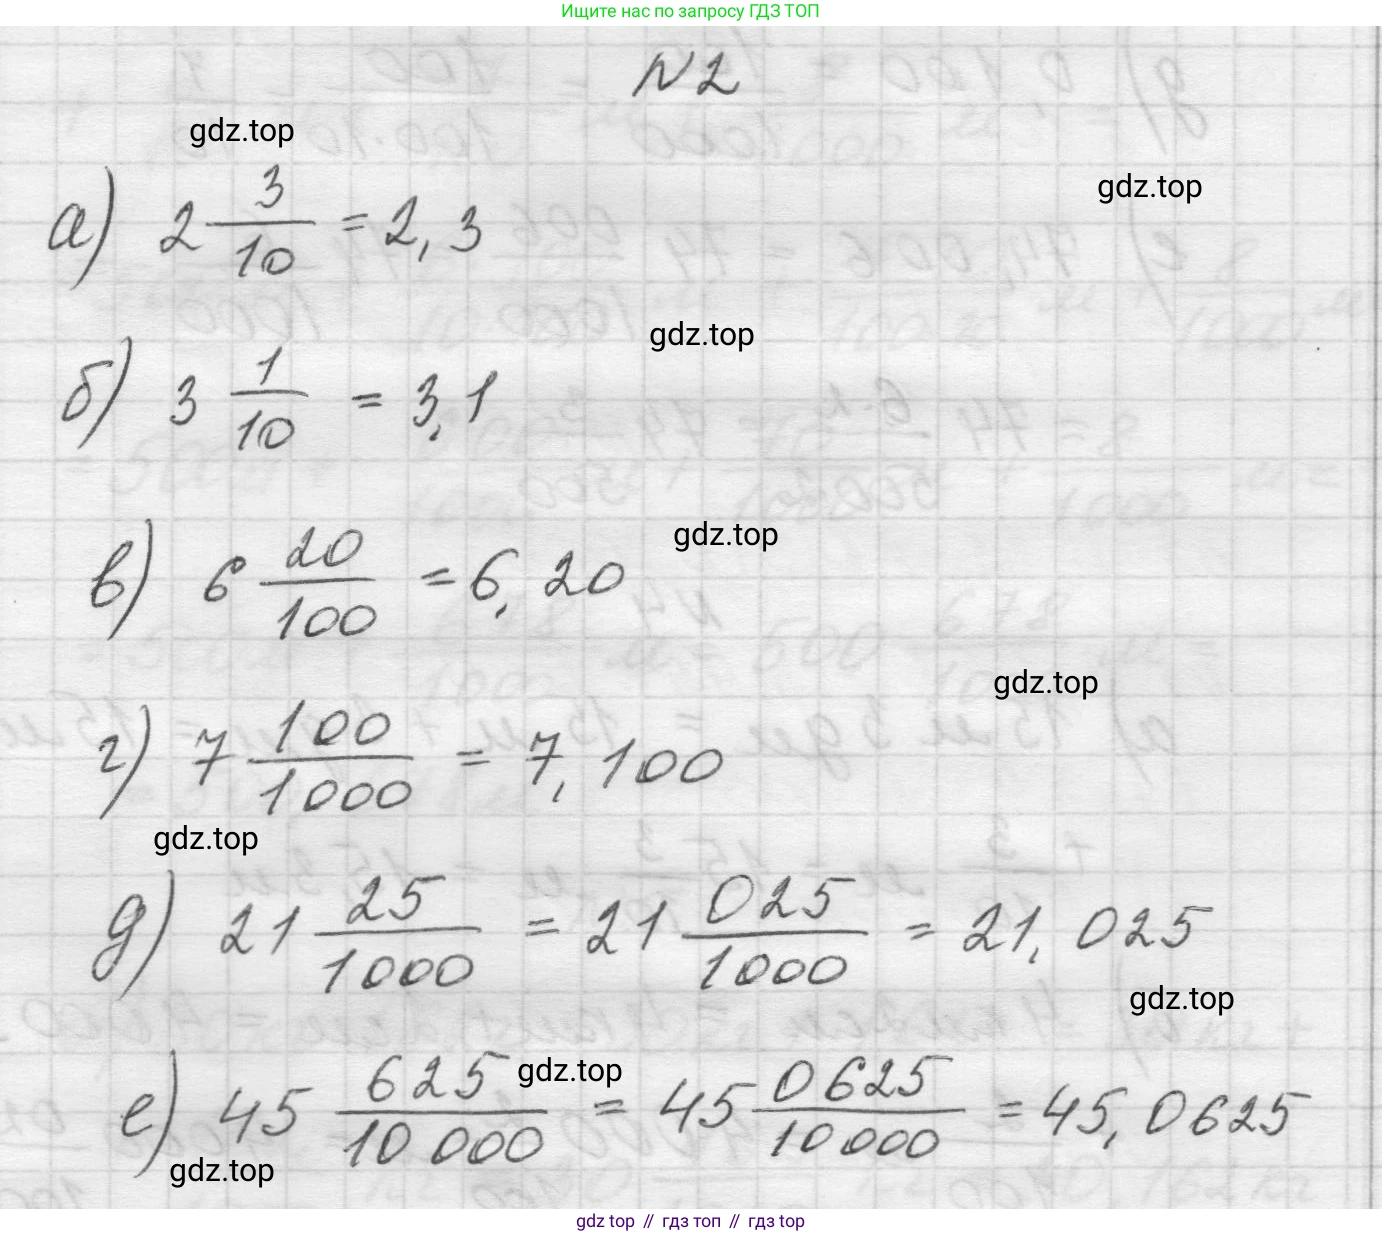 Ищите нас по запросу ГДЗ ТОП
N2
gdz.top
gdz.top
а) 2 3/10 = 2,3
gdz.top
б) 3 1/10 = 3,1
gdz.top
в) 6 20/100 = 6,20
gdz.top
г) 7 100/1000 = 7,100
gdz.top
д) 21 25/1000 = 21 025/1000 = 21,025
gdz.top
gdz.top
е) 45 625/10 000 = 45 0625/10 000 = 45,0625
gdz.top
gdz top // гдз топ // гдз top